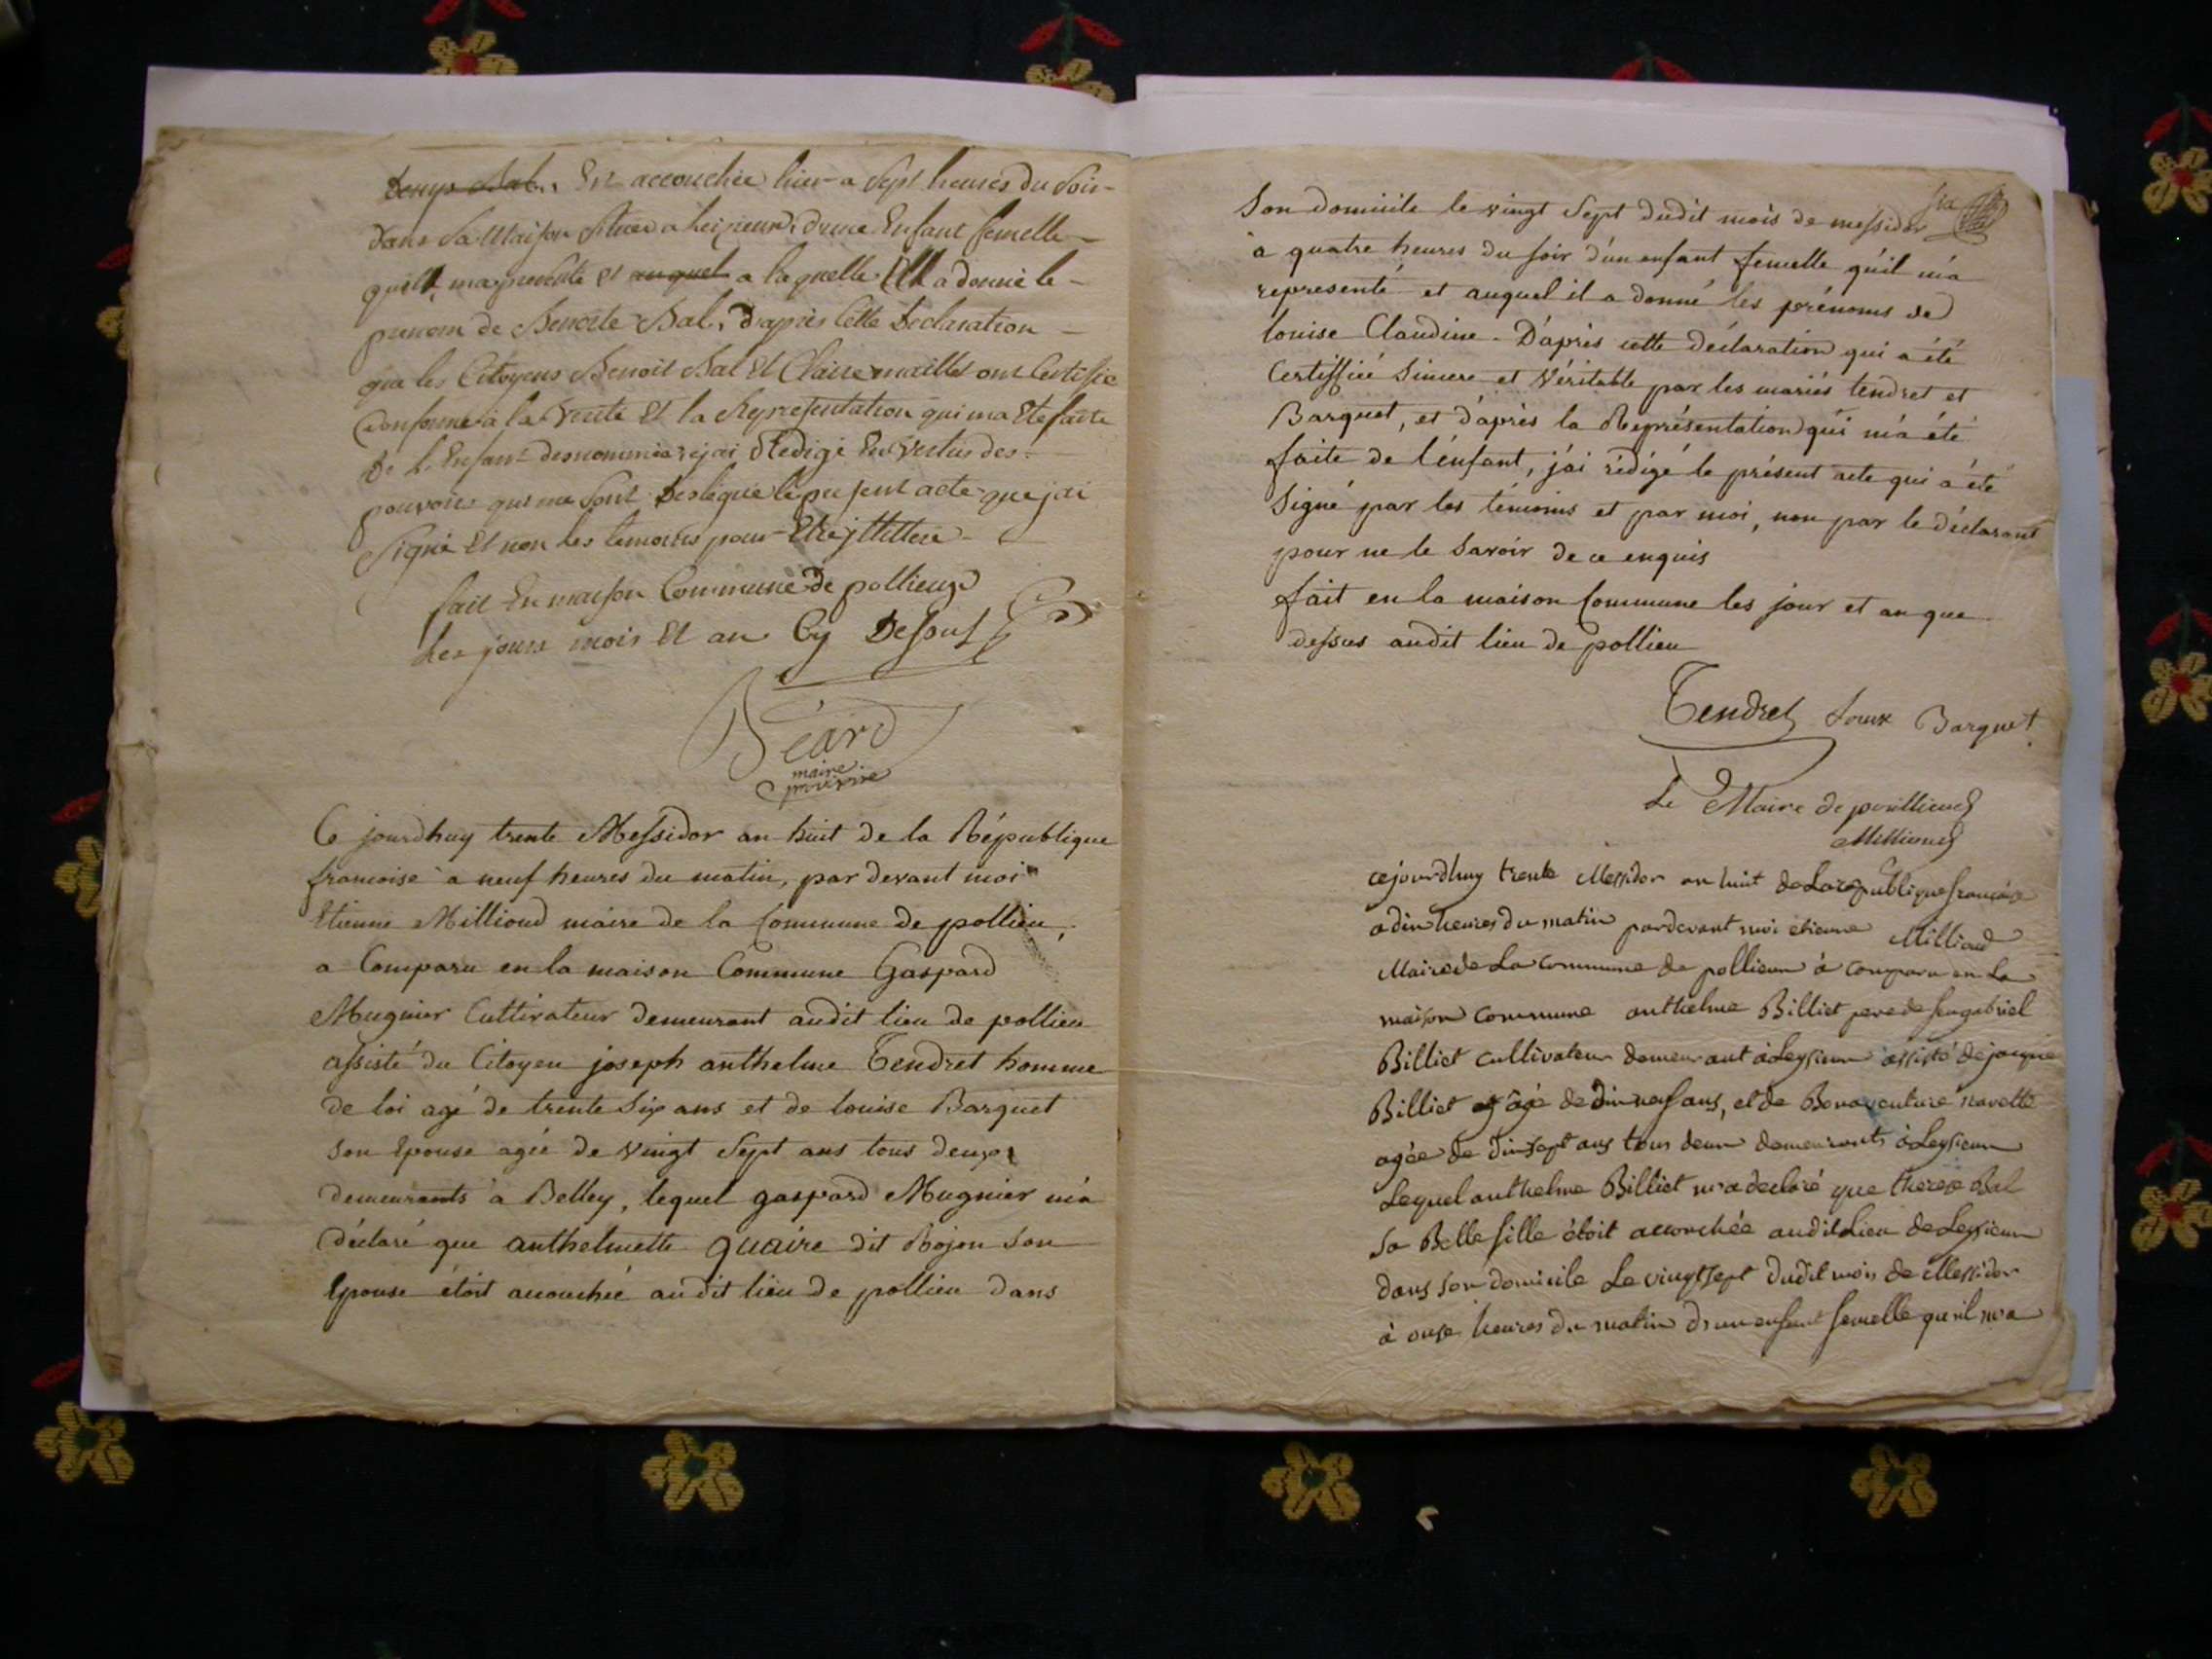 denys Bal. Est accouchée hier a Sept heures du Soir
dans Sa Maison Située a leizieux, d'une Enfant femelle
quill ma presenté et auquel a laquelle Ill a donné le
prenom de Benoite Bal, d'après Cette Declaration
que les Citoyens Benoit Bal Et Claire maillet ont Certifié
Conforme à la Verité Et la Representation qui ma Eté faite
De L'Enfant denommée, jai Redigé En Vertus des
pouvoirs qui me sont Delégué le present acte que jai
Signé Et non les temoins pour Etre jllitteré
fait En maison Commune de pollieux
Les jours mois Et an Cy Dessus
Béard
maire
provisoire
Ce jourdhuy trente Messidor an huit de la République
francoise à neuf heures du matin, par devant moi
Etienne Milliond maire de la Commune de pollieu,
a Comparu en la maison Commune Gaspard
Mugnier Cultivateur demeurant audit lieu de pollieu
assisté du Citoyen joseph anthelme Tendret homme
de loi agé de trente Six ans et de louise Barquet
son Epouse agée de vingt Sept ans tous deux
demeurants a Belley, lequel gaspard Mugnier m'a
déclaré que anthelmette quaire dit Rojon son
Epouse étoit accouchée audit lieu de pollieu dans
Son domicile le vingt Sept dudit mois de messidor
à quatre heures du soir d'un enfant femelle qu'il m'a
representé et auquel il a donné les prénoms de
louise Claudine. D'après cette déclaration qui a été
Certiffiée Sincere et Véritable par les mariés tendret et
Barquet, et d'après la Représentation qui m'a été
faite de l'enfant, j'ai rédigé le présent acte qui a été
Signé par les témoins et par moi, non par le déclarant
pour ne le Savoir de ce enquis
fait en la maison Commune les jour et an que
dessus audit lieu de pollieu
Tendret Barquet
Le Maire de pouillieux
Milliond
cejourdhuy trente Messidor an huit de La republique francaise
a dix heures du matin pardevant moi etienne Milliond
Maire de La commune de pollieux à comparu en La
maison commune anthelme Billiet pere de feu gabriel
Billiet cultivateur demeurant à Leysieux assisté de jacque
Billiet agé de dix neuf ans, et de Bonaventure navette
agée de dix sept ans tous deux demeurants à Leysieux
Lequel anthelme Billiet m'a declaré que therese Bal
sa Belle fille étoit accouchée audit Lieu de Leysieux
dans son domicile Le vingt sept dudit mois de Messidor
à onze heures du matin d'un enfant femelle qu'il m'a